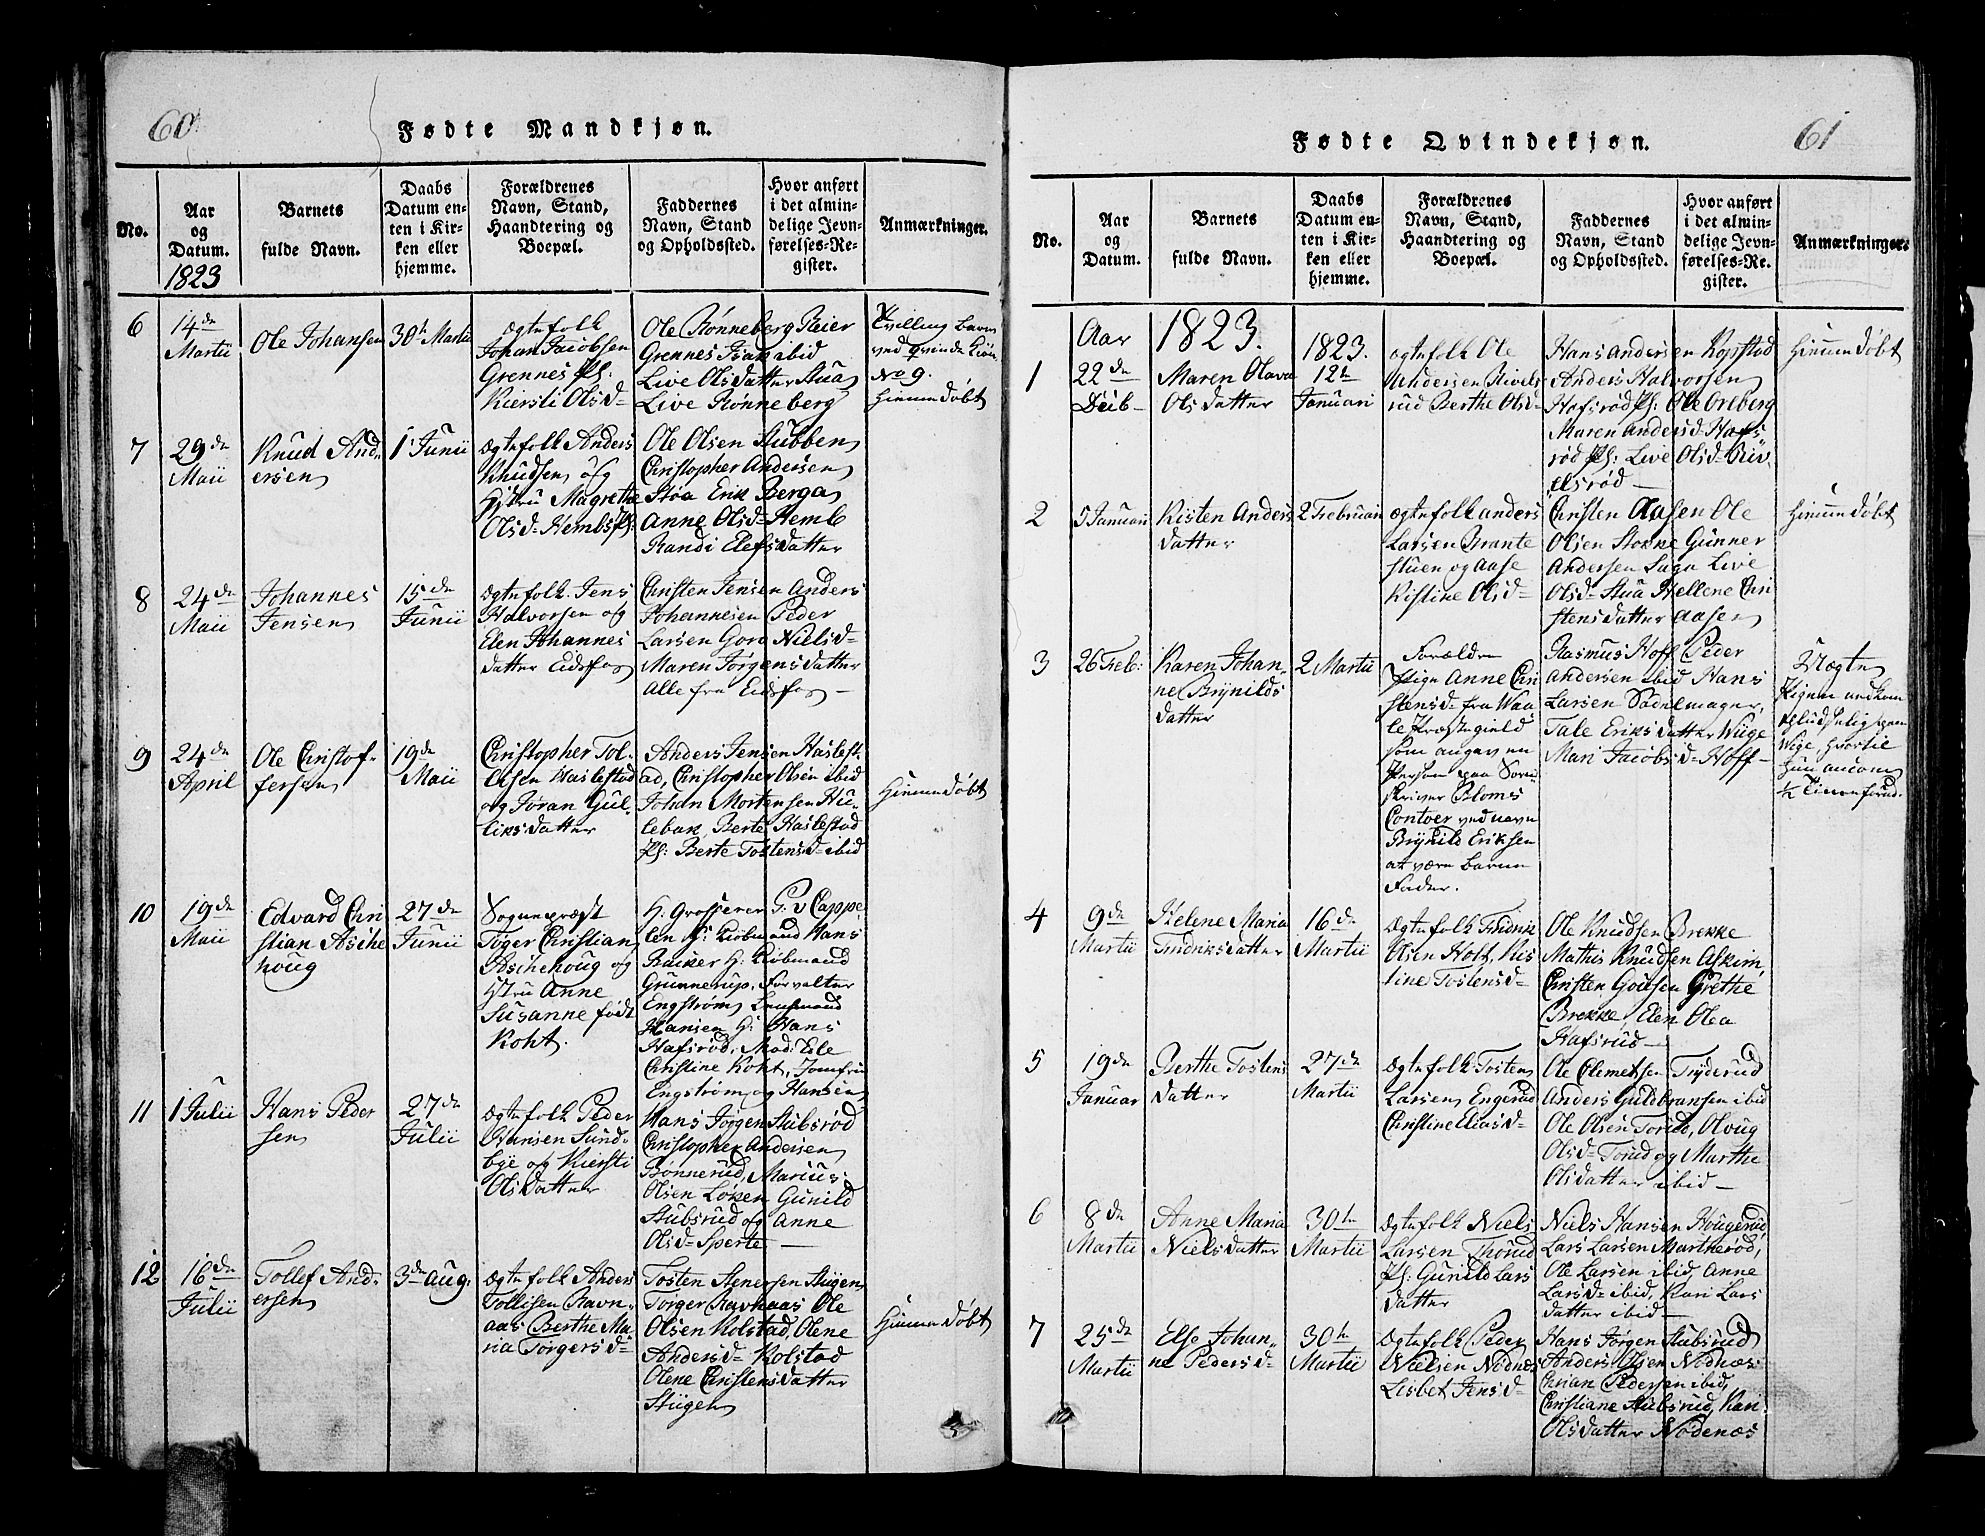 60.
Fødte Mandkjøn.
No.
Aar
og
Datum.
1823
Barnets
fulde Navn.
Daabs
Datum en-
ten i Kir-
ken eller
hjemme.
Forældrenes
Navn, Stand,
Haandtering og
Boepæl.
Faddernes
Navn, Stand
og Opholdssted.
Hvor anført
i det almin-
delige Jevn-
førelses-Re-
gister.
Anmærkninger.
6
14de
Martii
Ole Johansen
30te Martii
Ægtefolk
Johan Jacobsen
Grennes Pl:
Kiersti Olsd=
Ole Rønneberg Reier
Grennes Isak ibid
Live Olsdatter Stua
Live Rønneberg
Tvilling barn
ved qvinde Kiøn
No 9.
Hiemmedøbt
7
29de
Maii
Knud And-
ersen
1 Junii
Ægtefolk Anders
Knudsen og
Hstru Magrethe
Olsd= Hembs Pl:
Ole Olsen Stubben
Christopher Andersen
Støa Erik Berga
Anne Olsd= Hemb
Randi Elefsdatter
8
24de
Maii
Johannes
Jensen
15de
Junii
Ægtefolk Jens
Halvorsen og
Elen Johannes
datter Eidsfos
Christen Jensen Anders
Johannesen Peder
Larsen Goro Nielsd=
Maren Jørgensdatter
Alle fra Eidsfos
9
24de
April
Ole Christof-
fersen
19de
Maii
Christopher Tol-
lefsen Haslestad
og Jøran Gul-
liksdatter
Anders Jensen Haslest-
ad, Christopher Olsen ibid
Johan Mortensen Hu-
lebak, Berte Haslestad
Pl: Berte Tostensd= ibid
Hiemmedøbt
10
19de
Maii
Edvard Chri
stian Asche
houg
27de
Junii
Sognepræst
Toger Christian
Aschehoug og
Hstru Anne
Susanne født
Koht.
H: Grosserer P: v Cappe-
len H: Kiøbmand Hans
Backer H: Kiøbmand
Grunnerup, Forvalter
Engstrøm Lensmand
Hansen H: Hans
Hafsrød, Mad: Eile
Christine Koht, Jomfru
Engstrøm og Hansen
11
1 Julii
Hans Peder
sen
27de
Julii
Ægtefolk Peder
Hansen Sund-
bye og Kiersti
Olsdatter
Hans Jørgen Stubsrød
Christopher Andersen
Bønnerud, Marius
Olsen Løken Gunild
Stubsrud og Anne
Olsd= Sperte
12
16de
Julii
Tollef And-
ersen
3de Aug:
Ægtefolk Anders
Tollefsen Ravn-
aas Berthe Ma-
ria Torgersd=
Tosten Agnersen Stigen
Torger Ravnaas Ole
Olsen Kolstad, Olene
Andersd= Kolstad
Olene Christensdatter
Stigen
Hiemmedøbt
61
Fødte Qvindekjøn.
No.
Aar
og
Datum.
Barnets
fulde Navn.
Daabs
Datum en-
ten i Kir-
ken eller
hjemme.
Forældrenes
Navn, Stand,
Haandtering og
Boepæl.
Faddernes
Navn, Stand
og Opholdssted.
Hvor anført
i det almin-
delige Jevn-
førelses-Re-
gister.
Anmærkninger.
Aar
1823.
1823.
1
22de
Decb=
Maren Olava
Olsdatter
12te
Januari
Ægtefolk Ole
Andersen Rivels
rud Berthe Olsd=
Hans Andersen Kopstad
Anders Halvorsen
Hafsrød Pl: Ole Oreberg
Maren Andersd: Hafs
rød Pl: Live Olsd= Riv
elsrød
Hiemmedøbt
2
5 Januari
Kisten Anders
datter
2 Februari
Ægtefolk Anders
Larsen Brante
stuen og Aase
Kistine Olsd=
Christen Aasen Ole
Olsen Stokke Gunner
Andersen Saga Live
Olsd= Stua Hellene Chri
stensdatter Aasen
Hiemmedøbt
3
26 Feb:
Karen Johan-
ne Brynilds
datter
2 Martii
Forældre
Pigen Anne Chri
stensd= fra Waa
le Præstegield
som angav en
Person paa Soren
skriver Bloms
Contoer ved navn
Brynild Eriksen
at være barne
Fader.
Rasmus Hoff Peder
Andersen ibid Hans
Larsen Sadelmager,
Tale Eriksdatter Wiige
Mari Jacobsd= Hoff
Uægte
Wige, hvortil
hun ankom
4
9de
Martii
Helene Maria
Fredriksdatter
16de
Martii
Ægtefolk Fredrik
Olsen Holt, Kis
tine Tostensd=
Ole Knudsen Brekke
Mathis Knudsen Askim,
Christen Goutsen Grethe
Brekke, Elen Olea
Hafsrud
5
19de
Januar
Berthe Tostens
datter
27de
Martii
Ægtefolk Tosten
Larsen Engerud
Christine Eliasd=
Ole Clemetsen Tryderud
Anders Guldbransen ibid
Ole Olsen Torud, Oloug
Olsd= Torud og Marthe
Olsdatter ibid
6
8de
Martii
Anne Maria
Nielsdatter
30te
Martii
Ægtefolk Niels
Larsen Thorud
Pl: Gunild Lars
datter
Niels Hansen Hougerud
Lars Larsen Martherød,
Ole Larsen ibid, Anne
Larsd= ibid, Kari Lars
datter ibid
7
25de
Martii
Else Johan-
ne Pedersd=
30te
Martii
Ægtefolk Peder
Nielsen Nødnes
Lisbet Jensd=
Hans Jørgen Stubsrud
Anders Olsen Nødnæs
Chrian Pedersen ibid,
Christiane Stubsrud, Kari
Olsdatter Nødenæs